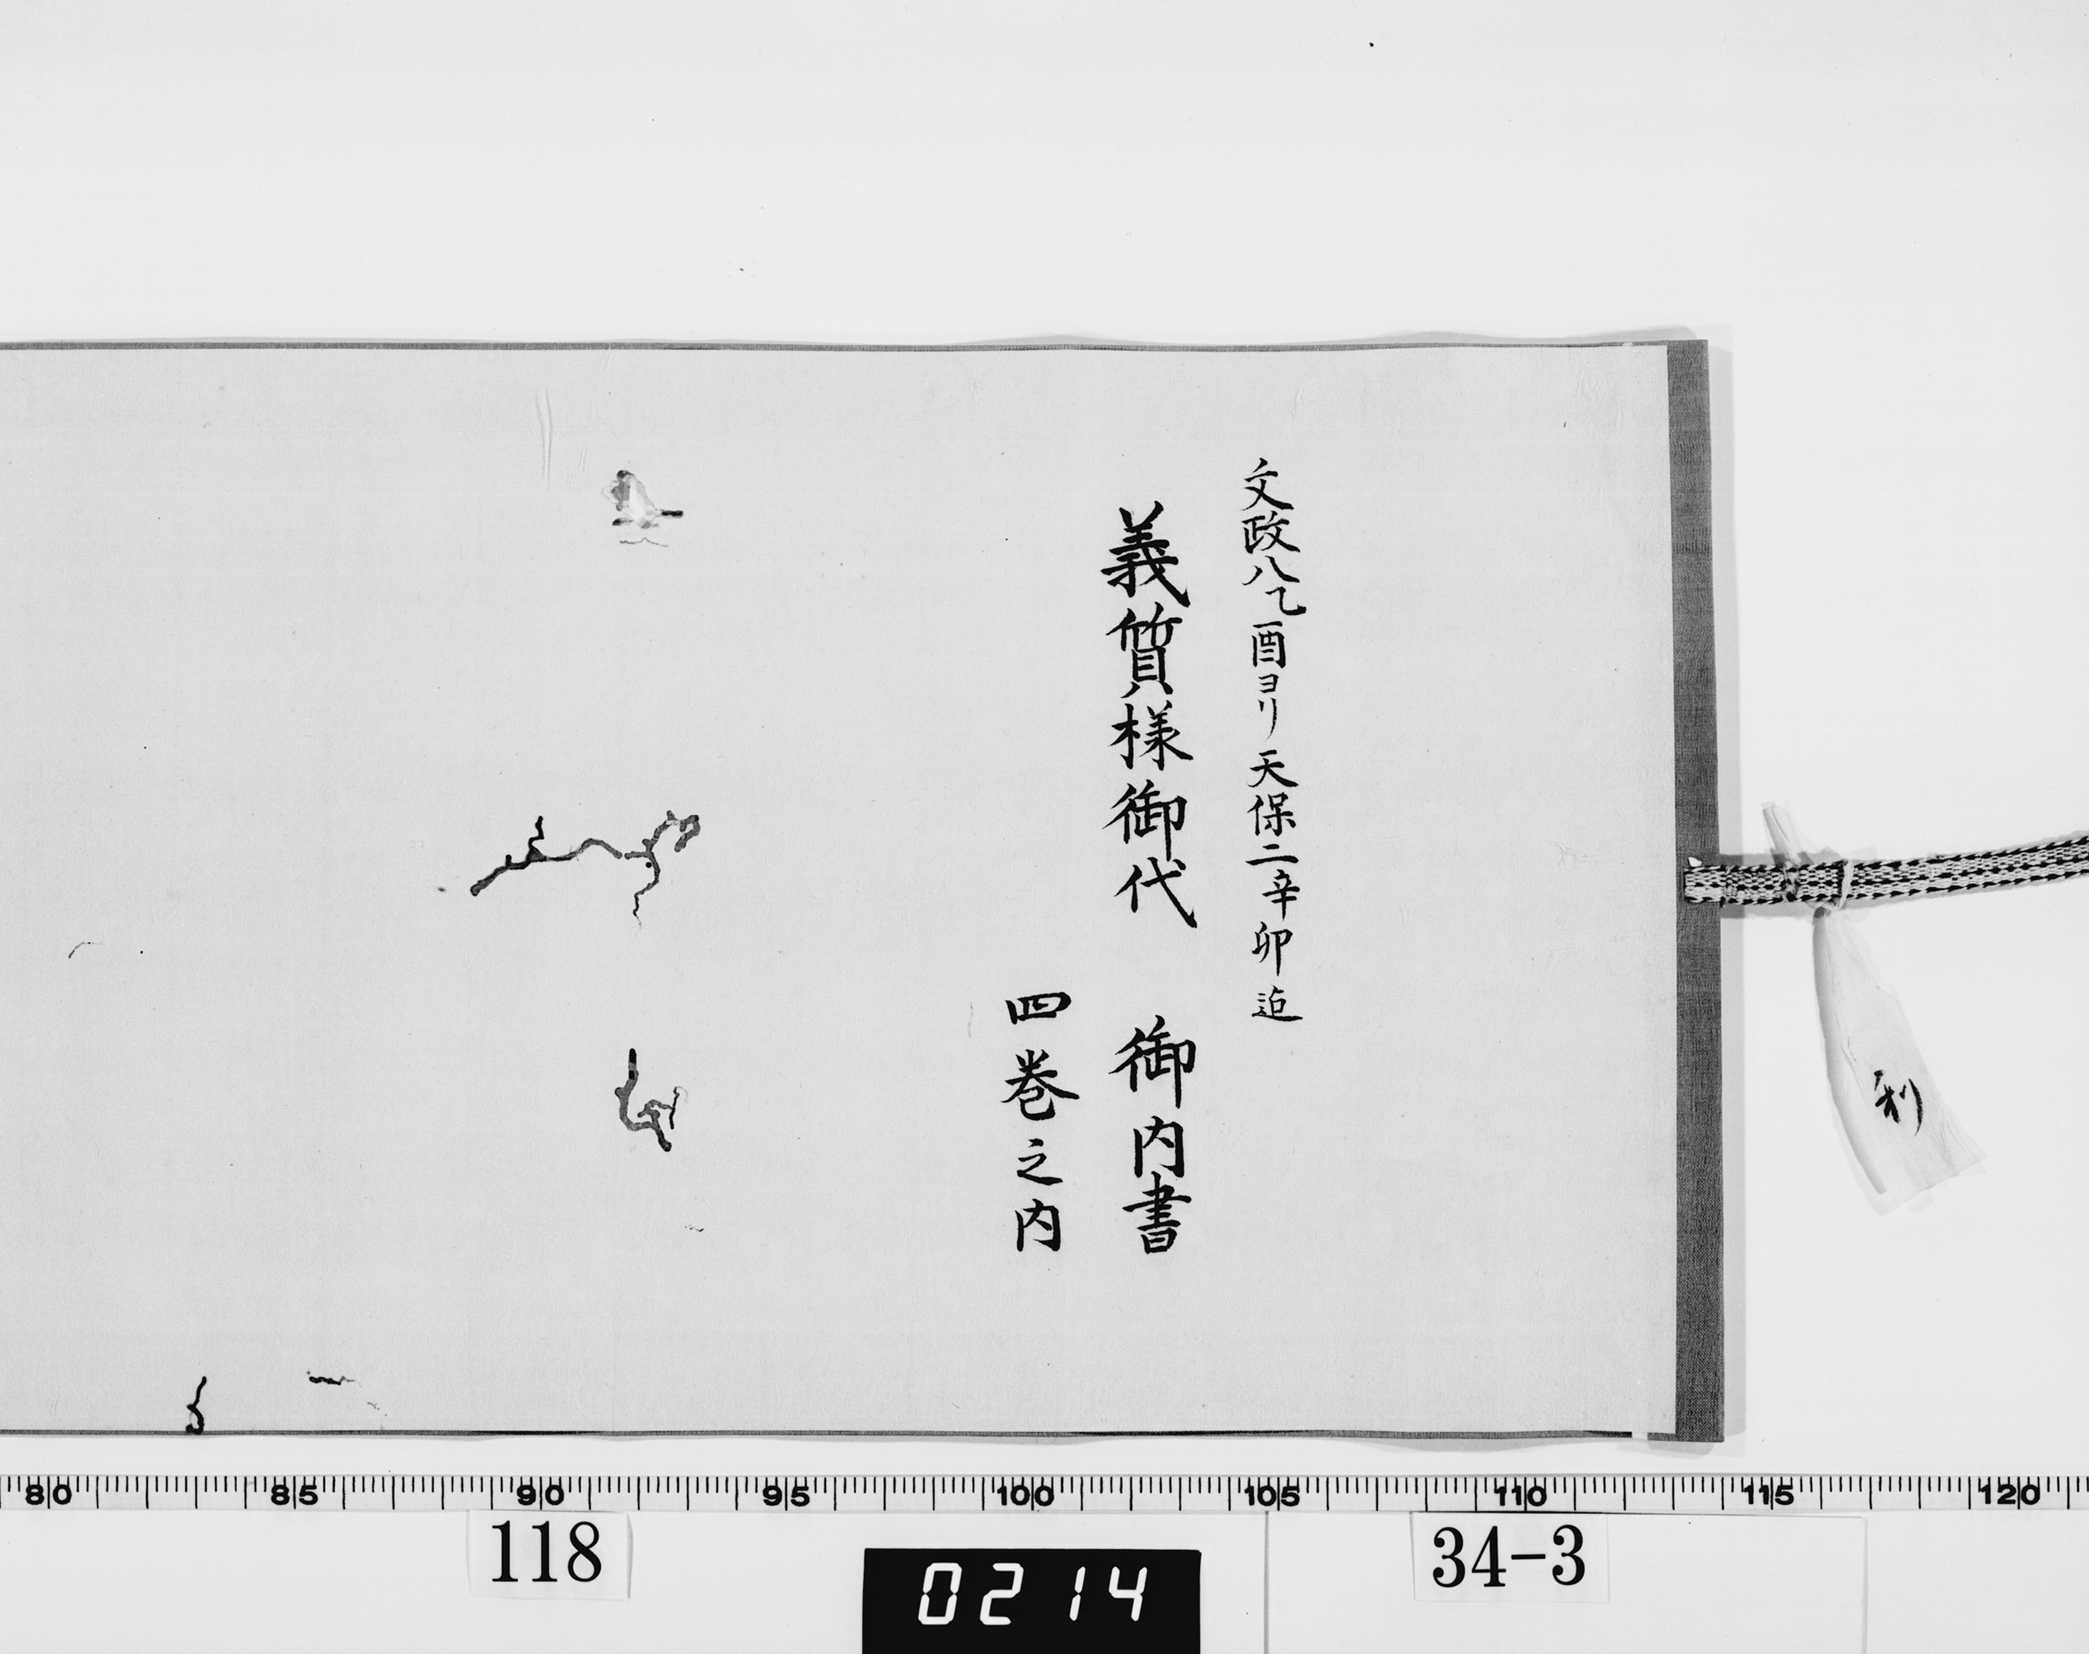 文政八乙酉ヨリ天保二辛卯迠
義質様御代 御内書
四巻之内
利
80 85 90 95 100 105 110 115 120
118
0214
34-3